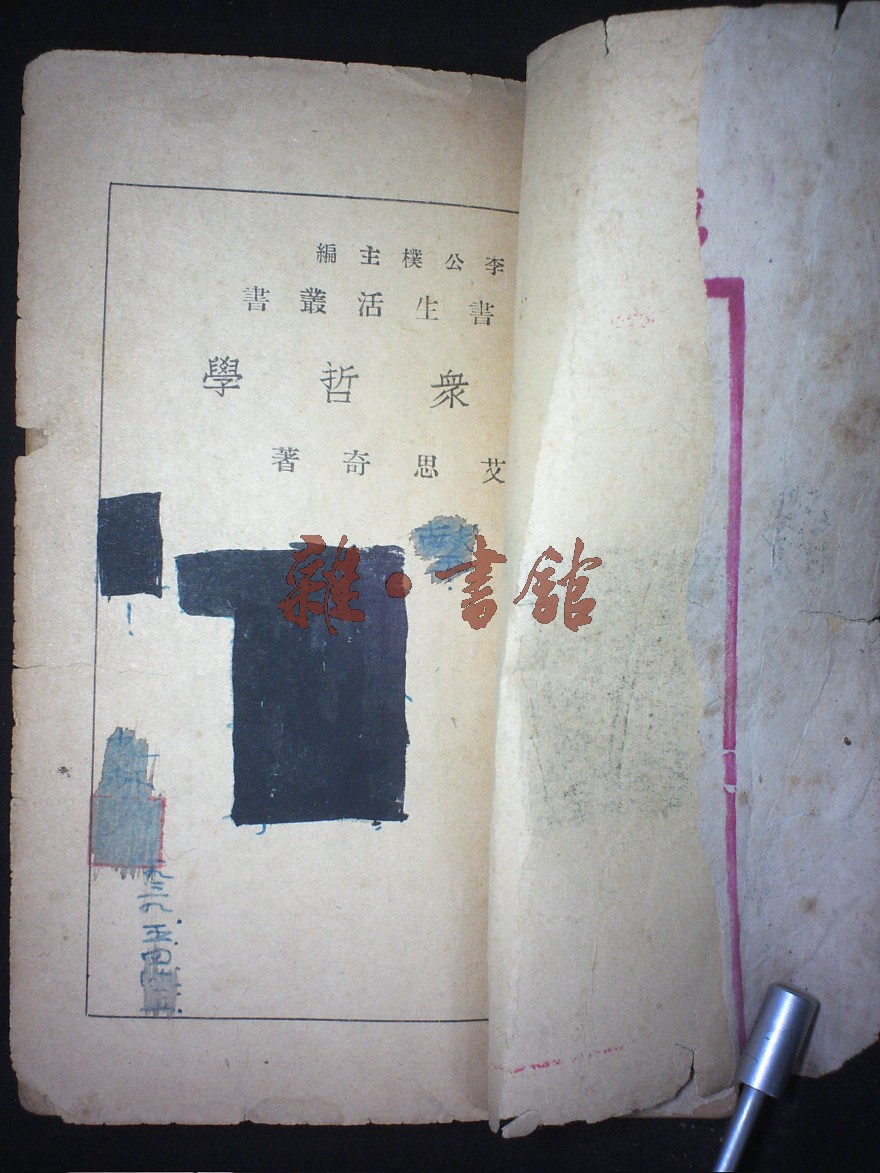 李公樸主編
書生活叢書
衆哲學
艾思奇著
雜·書館